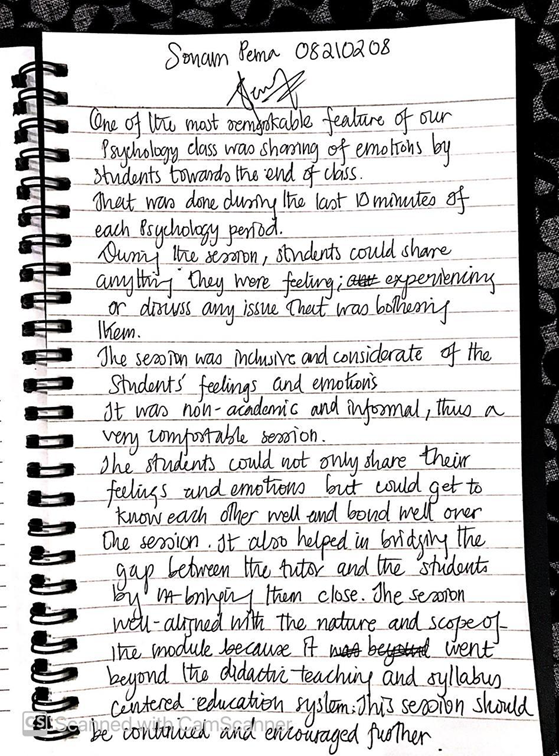 Sonam Pema 08210208
One of the most remarkable feature of our
Psychology class was sharing of emotions by
students towards the end of class.
That was done during the last 10 minutes of
each Psychology period.
During the session, students could share
anything they were feeling; experiencing
or discuss any issue that was bothering
them.
The session was inclusive and considerate of the
students' feelings and emotions
It was non-academic and informal, thus a
very comfortable session.
The students could not only share their
feelings and emotions but could get to
know each other well and bond well over
the session. It also helped in bridging the
gap between the tutor and the students
by bringing them close. The session
well-aligned with the nature and scope of
the module because it went
beyond the didactic teaching and syllabus
centered education system. This session should
be continued and encouraged further.
CS Scanned with CamScanner